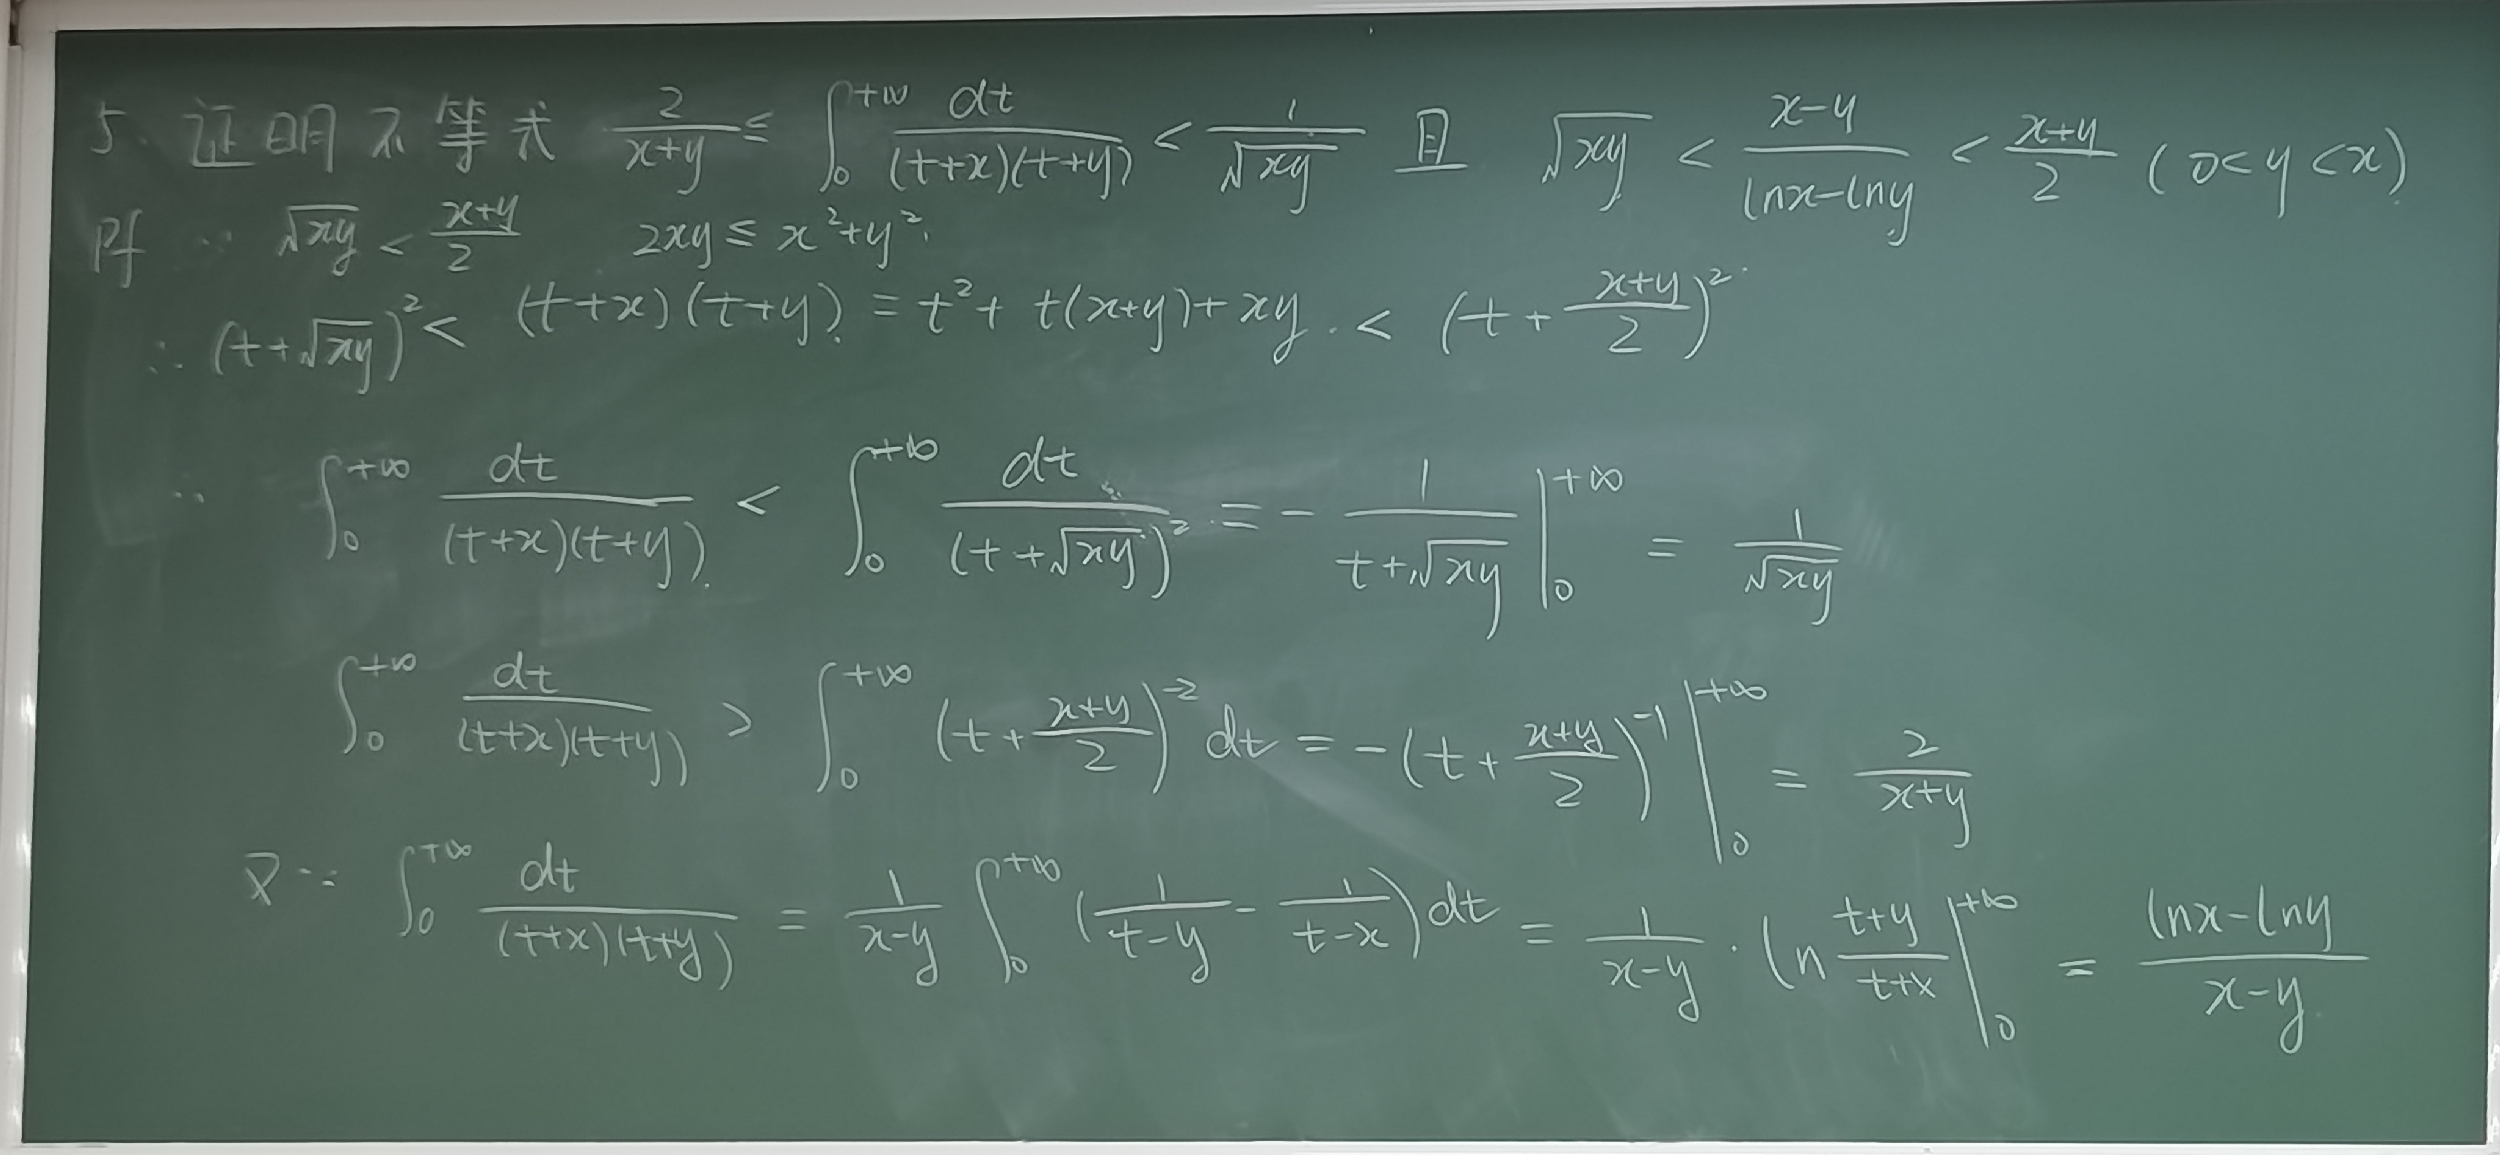 5. 证明不等式 $\frac{2}{x+y} \leq \int_0^{+\infty} \frac{dt}{(t+x)(t+y)} < \frac{1}{\sqrt{xy}}$ 且 $\sqrt{xy} < \frac{x-y}{\ln x - \ln y} < \frac{x+y}{2}$ $(0<y<x)$
Pf ∵ $\sqrt{xy} < \frac{x+y}{2}$ $2xy \leq x^2+y^2$.
∴ $(t+\sqrt{xy})^2 < (t+x)(t+y) = t^2 + t(x+y) + xy. < (t+\frac{x+y}{2})^2$
∴ $\int_0^{+\infty} \frac{dt}{(t+x)(t+y)} < \int_0^{+\infty} \frac{dt}{(t+\sqrt{xy})^2} = -\frac{1}{t+\sqrt{xy}} \Big|_0^{+\infty} = \frac{1}{\sqrt{xy}}$
$\int_0^{+\infty} \frac{dt}{(t+x)(t+y)} > \int_0^{+\infty} (t+\frac{x+y}{2})^{-2} dt = -(t+\frac{x+y}{2})^{-1} \Big|_0^{+\infty} = \frac{2}{x+y}$
又∵ $\int_0^{+\infty} \frac{dt}{(t+x)(t+y)} = \frac{1}{x-y} \int_0^{+\infty} (\frac{1}{t-y} - \frac{1}{t-x}) dt = \frac{1}{x-y} \cdot \ln \frac{t+y}{t+x} \Big|_0^{+\infty} = \frac{\ln x - \ln y}{x-y}$